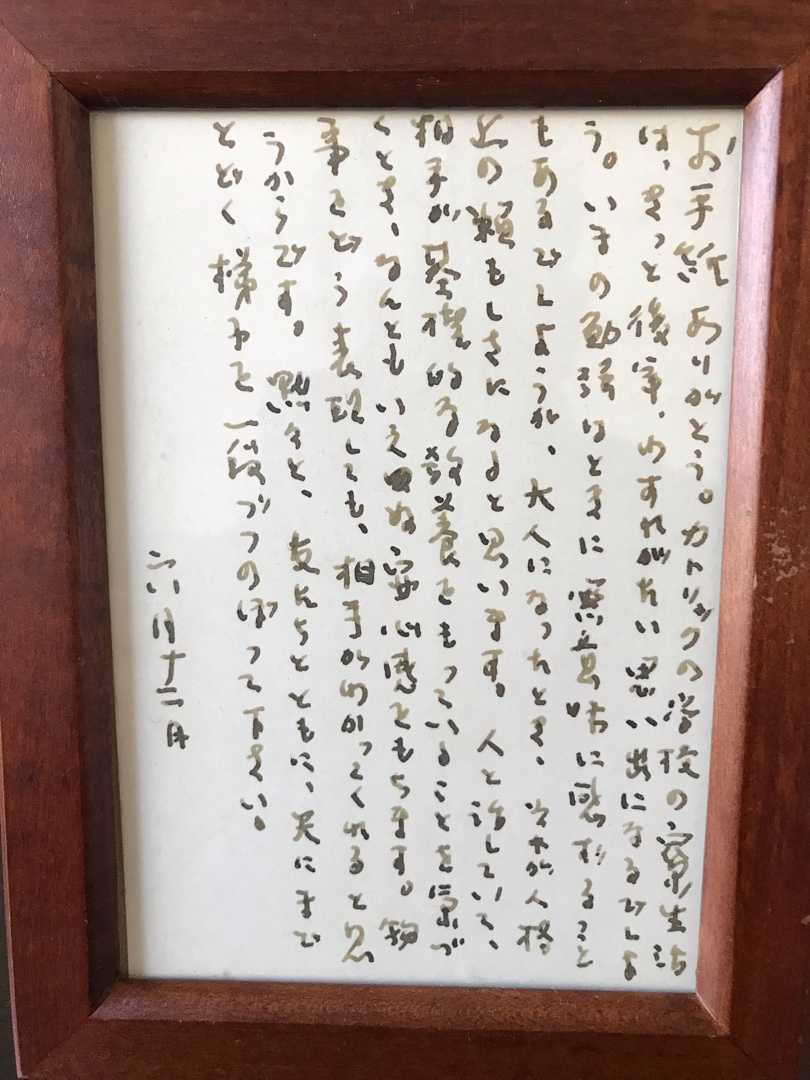 お手紙ありがとう。カトリックの学校の寮生活
は、きっと後年、わすれがたい思い出になるでしよ
う。いまの勉強はときに無意味に感ずること
もあるでしょうが、大人になったとき、それが人格
上の頼もしさになると思います。人と話していて、
相手が基礎的な教養をもっていることを気づ
くとき、なんともいえぬ安心感をもちます。物
事をどう表現しても、相手がわかってくれると思
うからです。黙々と、友だちとともに、天にまで
とどく梯子を一段づつのぼって下さい。
六月十二日